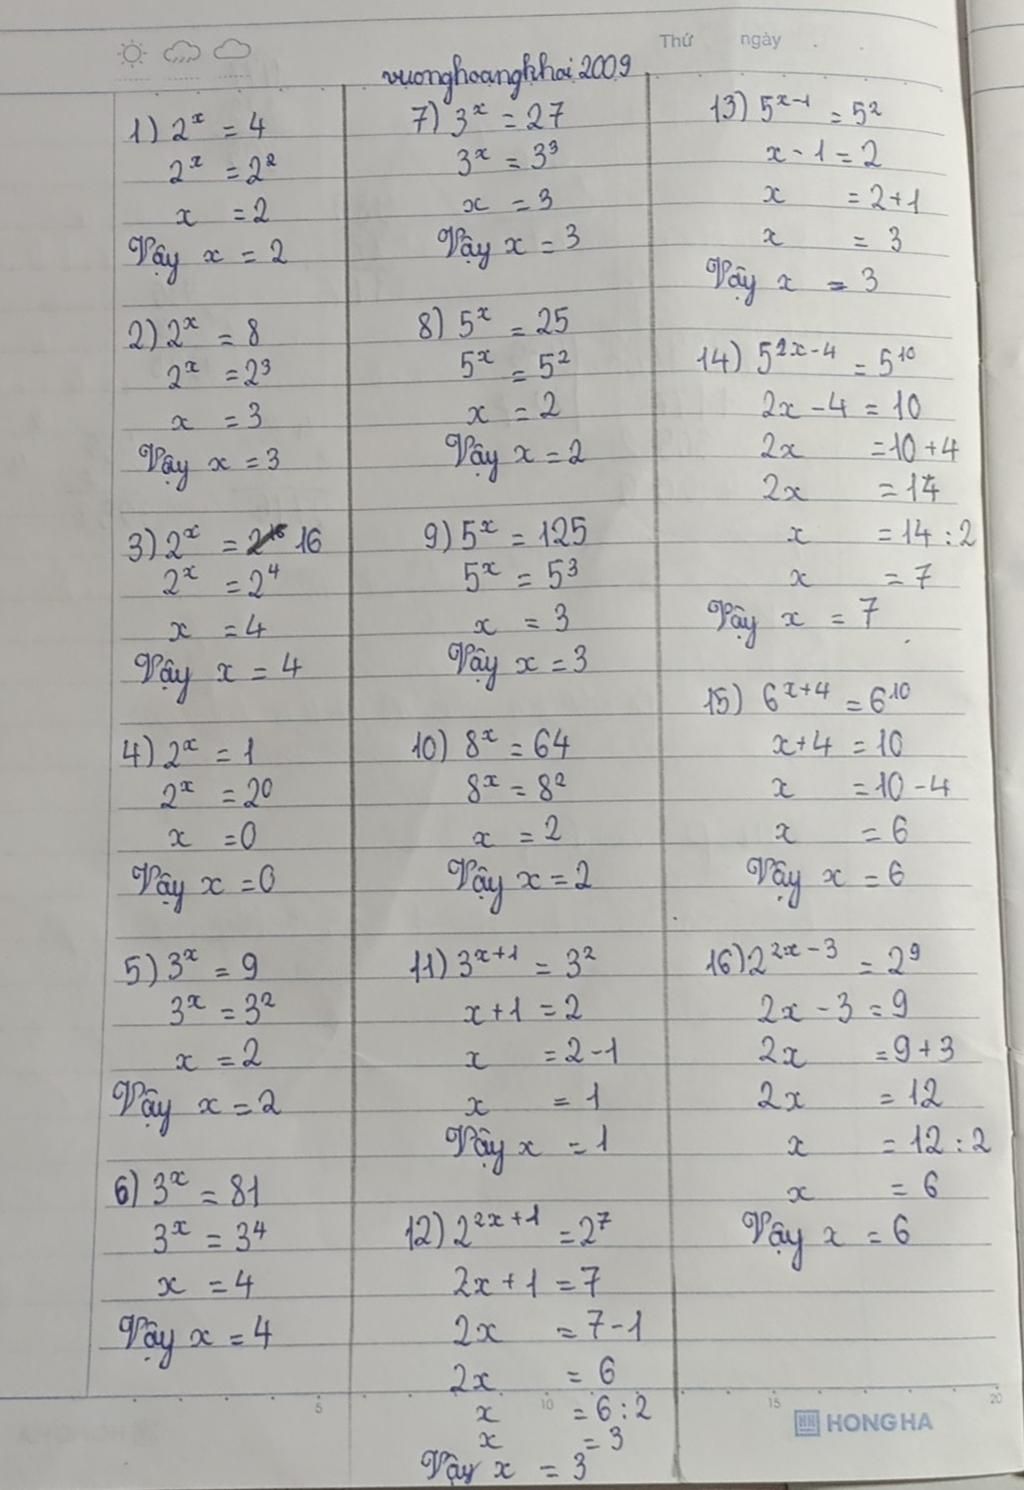 Thứ ngày
vuonghoangkhai2009
1) 2ˣ = 4
2ˣ = 2²
x = 2
Vậy x = 2
2) 2ˣ = 8
2ˣ = 2³
x = 3
Vậy x = 3
3) 2ˣ = 16
2ˣ = 2⁴
x = 4
Vậy x = 4
4) 2ˣ = 1
2ˣ = 2⁰
x = 0
Vậy x = 0
5) 3ˣ = 9
3ˣ = 3²
x = 2
Vậy x = 2
6) 3ˣ = 81
3ˣ = 3⁴
x = 4
Vậy x = 4
7) 3ˣ = 27
3ˣ = 3³
x = 3
Vậy x = 3
8) 5ˣ = 25
5ˣ = 5²
x = 2
Vậy x = 2
9) 5ˣ = 125
5ˣ = 5³
x = 3
Vậy x = 3
10) 8ˣ = 64
8ˣ = 8²
x = 2
Vậy x = 2
11) 3ˣ⁺¹ = 3²
x + 1 = 2
x = 2 - 1
x = 1
Vậy x = 1
12) 2²ˣ⁺¹ = 2⁷
2x + 1 = 7
2x = 7 - 1
2x = 6
x = 6 : 2
x = 3
Vậy x = 3
13) 5ˣ⁻¹ = 5²
x - 1 = 2
x = 2 + 1
x = 3
Vậy x = 3
14) 5²ˣ⁻⁴ = 5¹⁰
2x - 4 = 10
2x = 10 + 4
2x = 14
x = 14 : 2
x = 7
Vậy x = 7
15) 6ˣ⁺⁴ = 6¹⁰
x + 4 = 10
x = 10 - 4
x = 6
Vậy x = 6
16) 2²ˣ⁻³ = 2⁹
2x - 3 = 9
2x = 9 + 3
2x = 12
x = 12 : 2
x = 6
Vậy x = 6
5 10 15 20
HONG HA